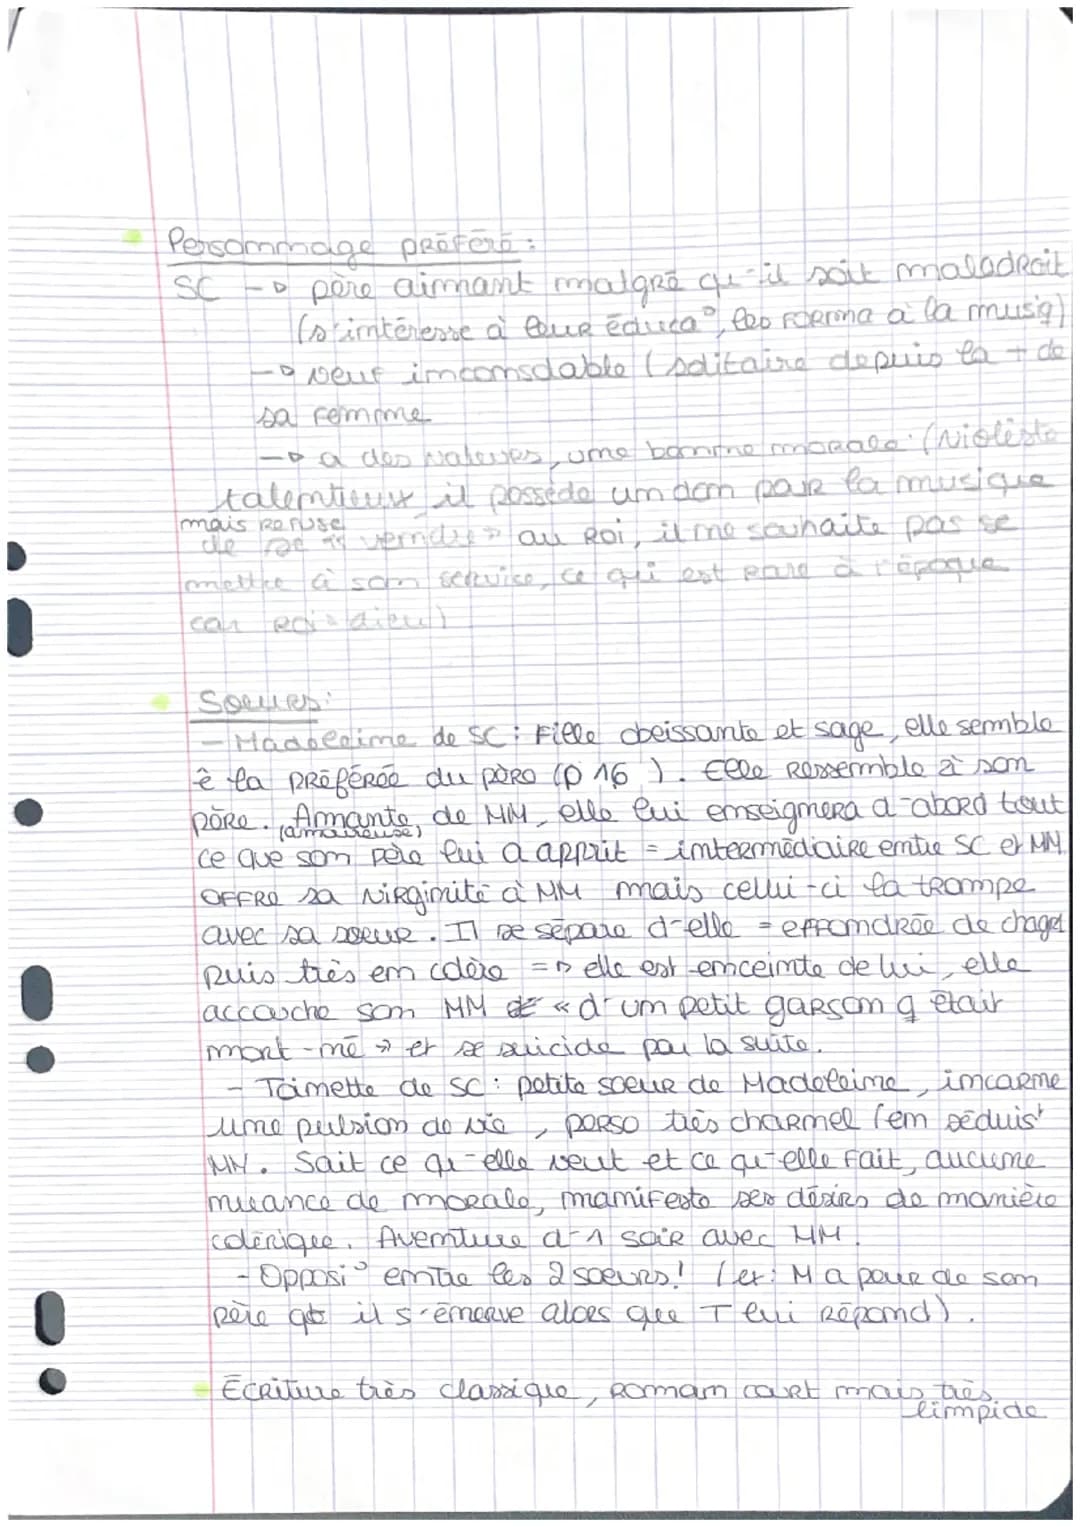 Personnage préféré :
SC -> père aimant malgré qu'il soit maladroit
(s'intéresse à leur éduca°, les forma à la musiq)
-> veuf inconsolable (solitaire depuis la + de
sa femme
-> a des valeurs, une bonne morale : (Violiste
talentieux, il possède un don pour la musique
mais refuse
de se « vendre » au Roi, il ne souhaite pas se
mettre à son service, ce qui est rare à l'époque
car roi = dieu)
Soeurs :
- Madeleine de SC : Fille obeissante et sage, elle semble
ê la préférée du père (p 16 ). Elle ressemble à son
père. Amante de MM, elle lui enseignera d'abord tout
(amoureuse)
ce que son père lui a apprit = intermédiaire entre SC et MM.
OFFRE sa virginité à MM mais cellui-ci la trompe
avec sa soeur. Il se sépare d'elle = effondrée de chagrin
puis très en colère => elle est enceinte de lui, elle
accouche son MM « d'un petit garson q était
mort-né » et se suicide par la suite.
- Toinette de SC : petite soeur de Madeleine, incarne
une pulsion de vie, perso très charnel (en séduis°
MM. Sait ce qu'elle veut et ce qu'elle fait, aucune
nuance de morale, manifeste ses désirs de manière
colérique. Aventure d'1 soir avec MM.
- Opposi° entre les 2 soeurs ! (ex : M a peur de son
père qd il s'énerve alors que T lui répond).
Ecriture très classique, roman court mais très
limpide